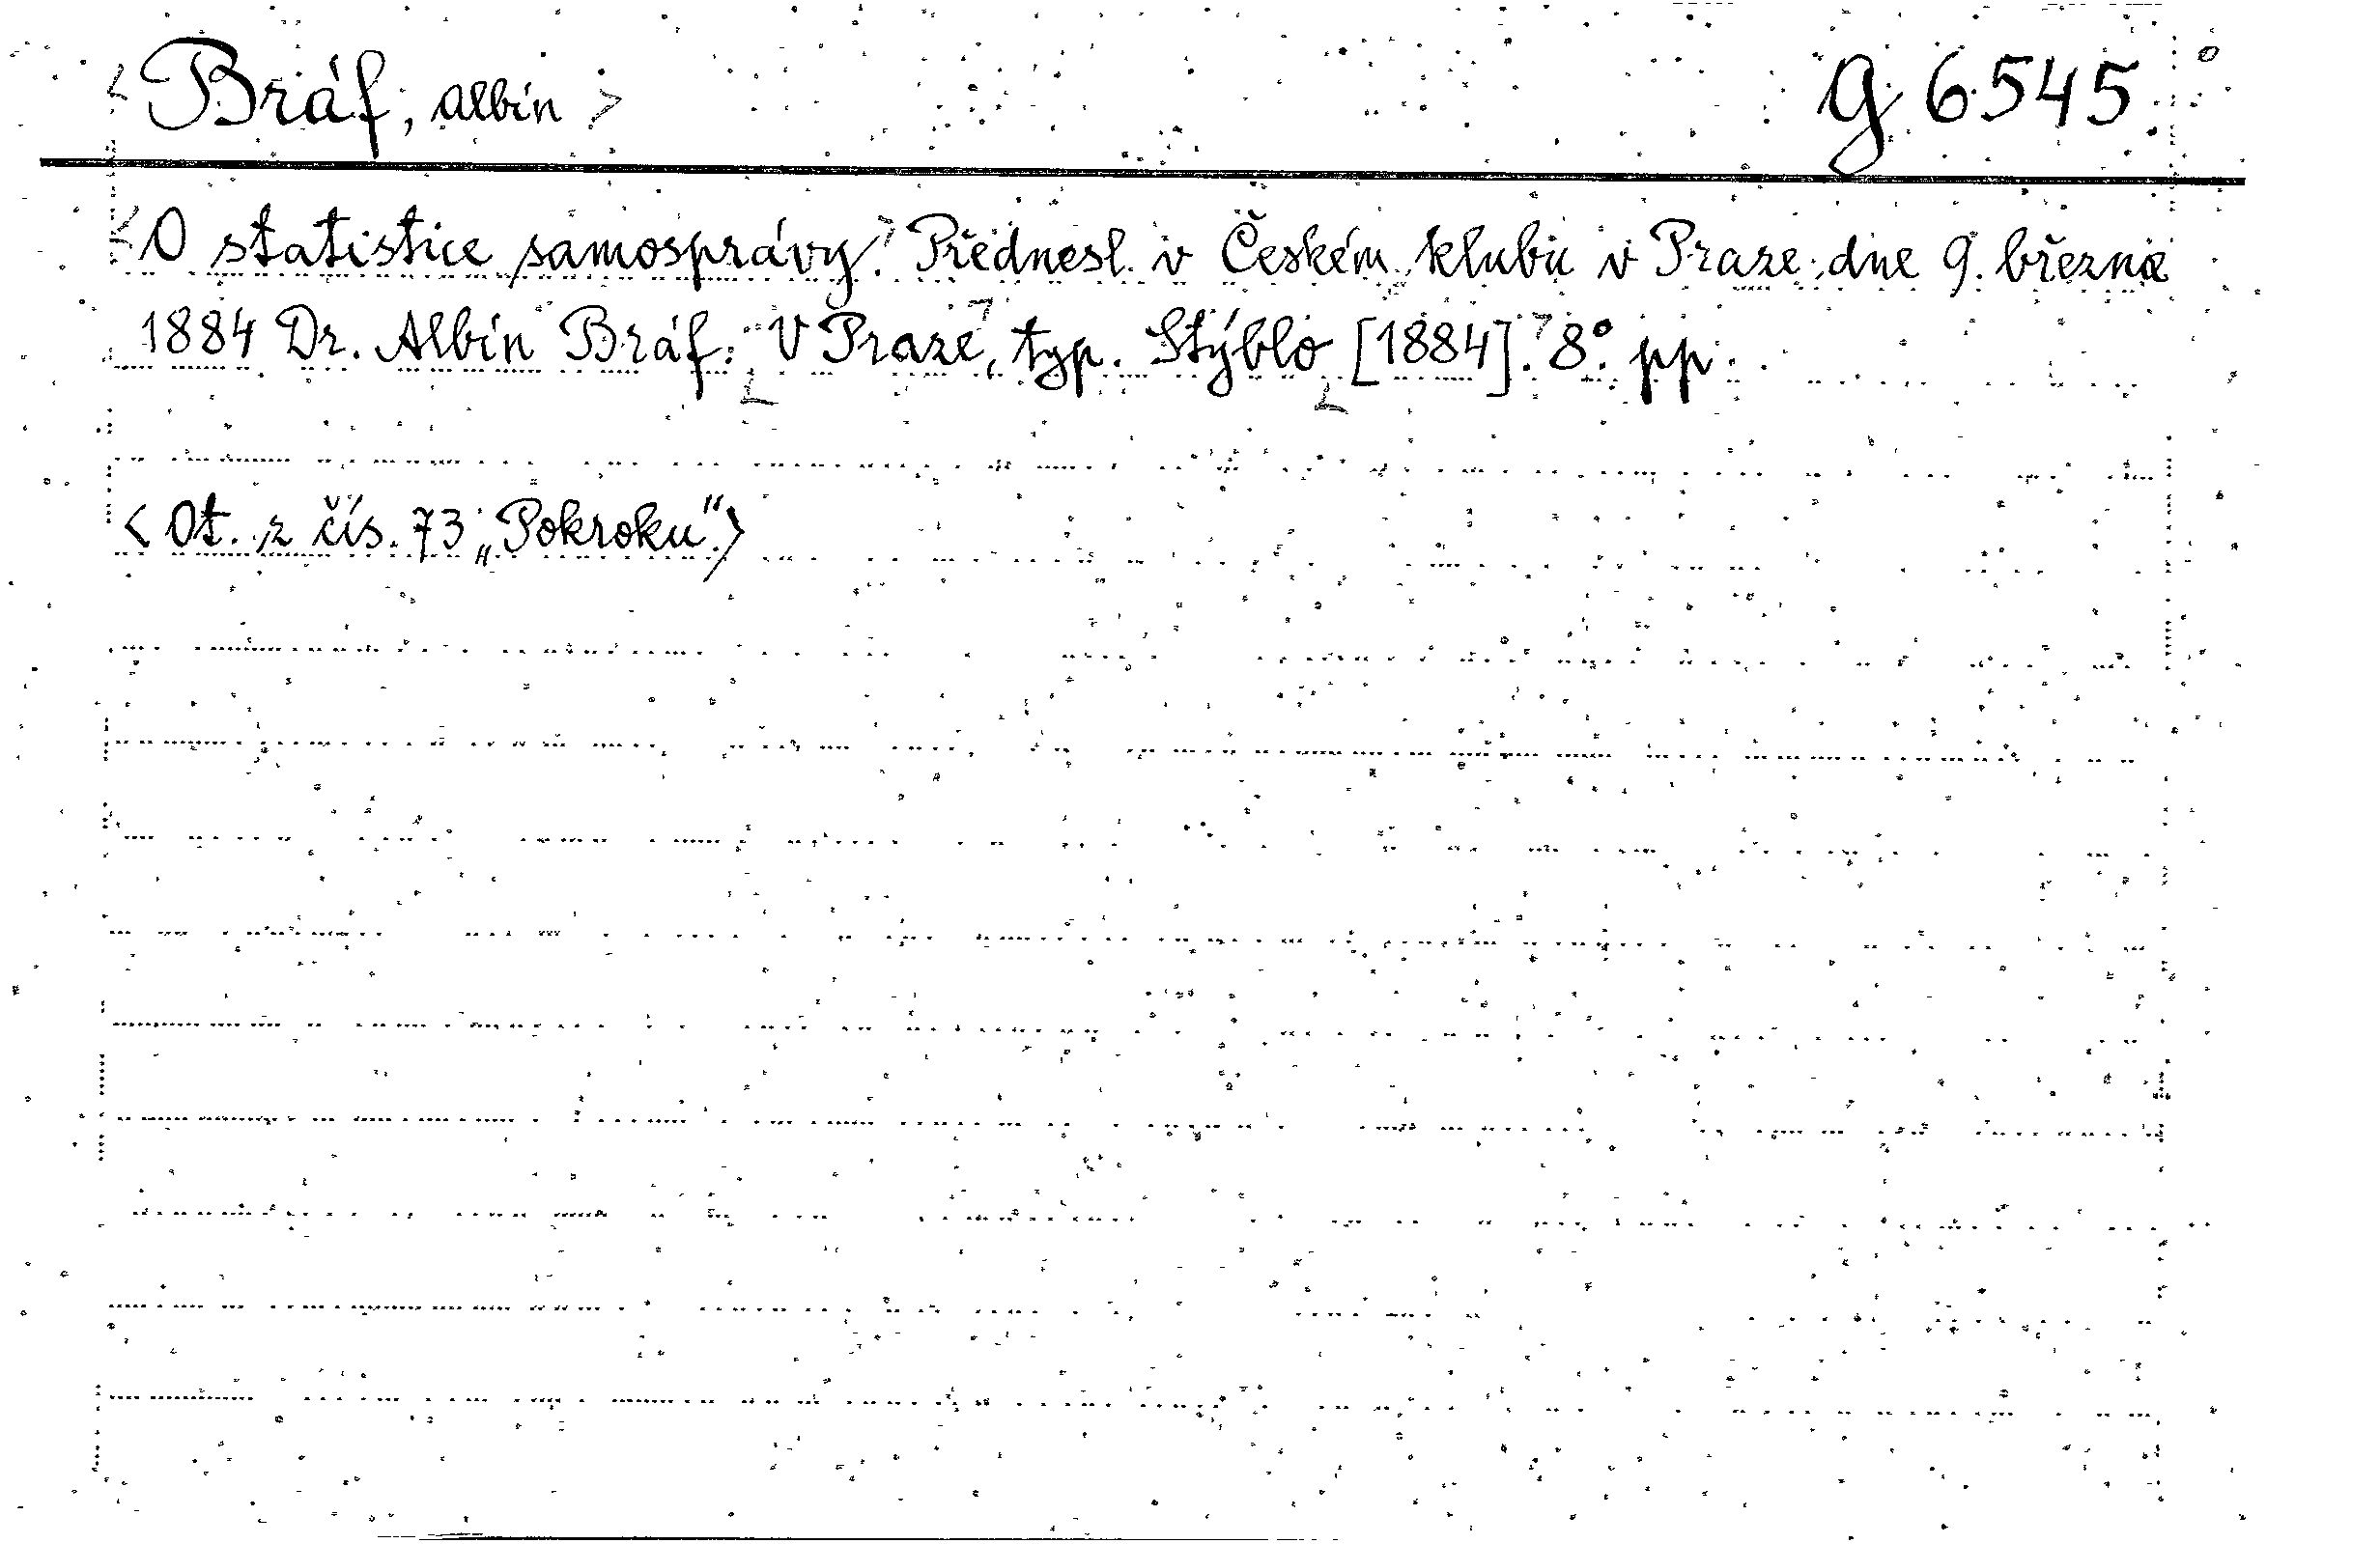 <Bráf, Albín> g 6545
<O statistice samosprávy.> Přednesl v Českém klubu v Praze dne 9. března
1884 Dr. Albín Bráf. V Praze, typ. Stýblo [1884]. 8°. pp.
<Ot. z čís. 73 „Pokroku“.>